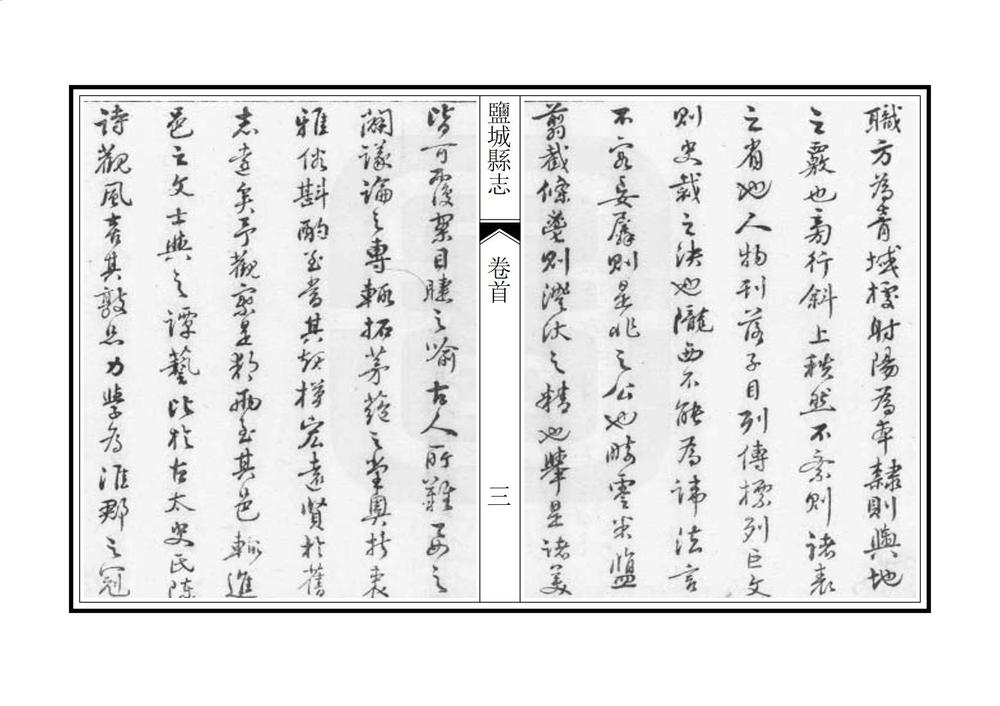 職方為青城擅射陽為本隸則輿地
之覈也旁行斜上秩然不紊則諸表
之省也人物刊落子目列傳標列巨文
則史裁之決也隴西不能為諱法言
不容妄孱則是非之公也畸零米鹽
翦截條 則澄汰之精也舉是諸美
鹽城縣志
卷首
三
皆可覆案目睫之喻古人所難要之
闢議論之專輒拓茅蕝之堂奧折衷
雅俗斟酌至當其規橅宏遠賢於舊
志遠矣予觀察是邦兩至其邑輒進
邑之文士與之譚藝比於古太史氏陳
詩觀風喜其敦品力學為淮郡之冠